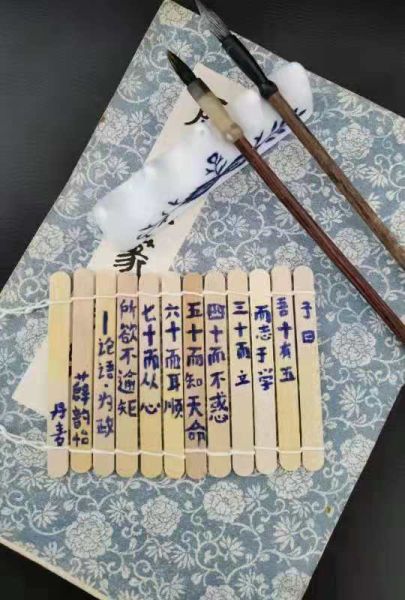 子曰
吾十有五
而志于学
三十而立
四十而不惑
五十而知天命
六十而耳顺
七十而从心
所欲不逾矩
—论语·为政
薛韵怡
丹青